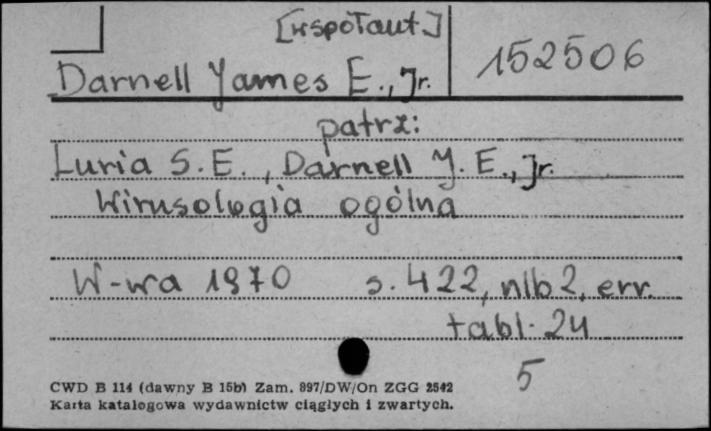 [współaut.]
152506
Darnell James E., Jr.
patrz:
Luria S.E., Darnell J. E., Jr.
Wirusologia ogólna
W-wa 1970 s. 422, nlb 2, err.
tabl. 24
5
CWD B 114 (dawny B 15b) Zam. 897/DW/On ZGG 2542
Karta katalogowa wydawnictw ciągłych i zwartych.